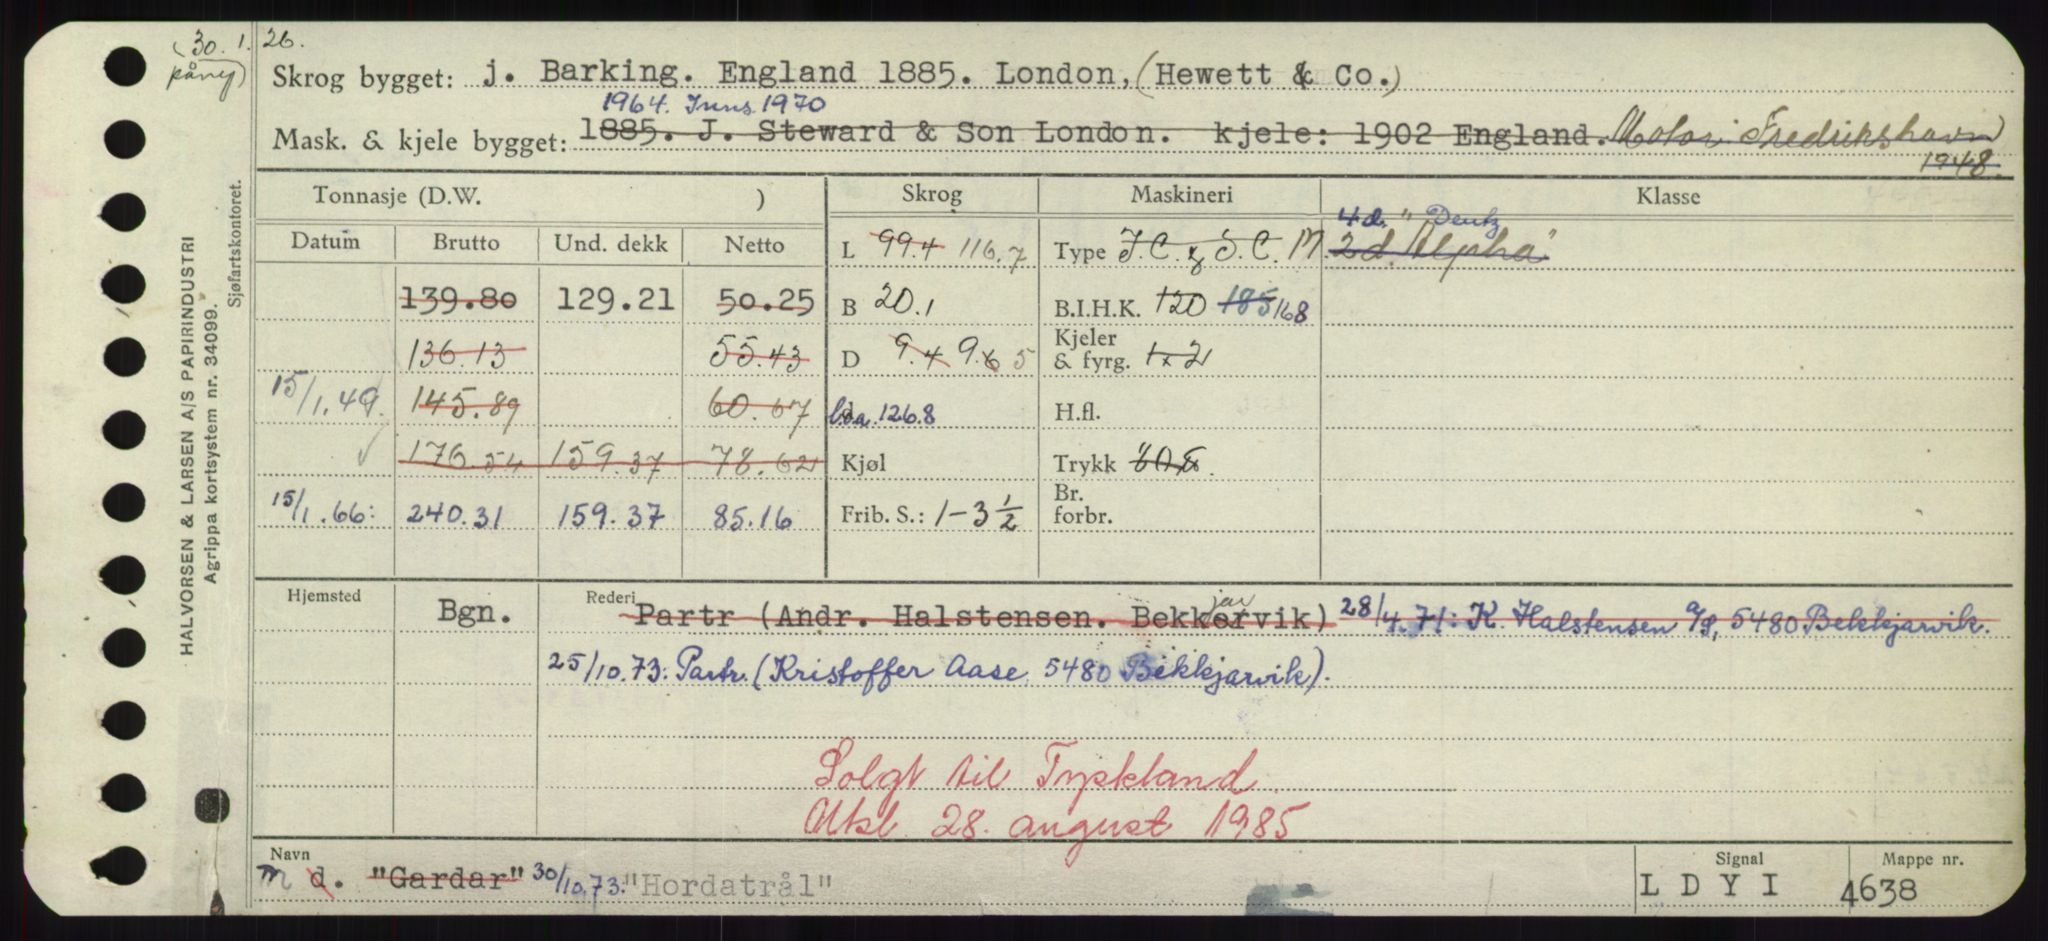 (30.1.26.
påny)
Skrog bygget: j. Barking. England 1885. London, (Hewett & Co.)
1964. Inns. 1970
Mask. & kjele bygget: 1885. J. Steward & Son London. kjele: 1902 England. Motor: Fredrikshavn
1948.
Tonnasje (D.W. ) Skrog Maskineri Klasse
Datum Brutto Und. dekk Netto
4 d. " Deutz
L 99.4 116.7 Type J.C. & S.C. M. 2 d. Alpha"
139.80 129.21 50.25 B 20.1 B.I.H.K. 120 185 168
136.13 55.43 D 9.4 9.6 5 Kjeler & fyrg. 1x2
15/1.49. 145.89 60.67 d l.o.a. 126.8 H.fl.
✓ 176.54 159.37 78.62 Kjøl Trykk
15/1.66: 240.31 159.37 85.16 Frib. S.: 1-3 1/2 Br. forbr.
Hjemsted Rederi
Bgn. Partr (Andr. Halstensen. Bekkjarvik) 28/4.71: K. Halstensen A/S, 5480 Bekkjarvik.
25/10.73: Partr. (Kristoffer Aase, 5480 Bekkjarvik).
Solgt til Tyskland.
Utsl. 28. august 1985
Navn Signal Mappe nr.
m d. "Gardar" 30/10.73: "Hordatrål" L D Y I 4638
HALVORSEN & LARSEN A/S PAPIRINDUSTRI
Agrippa kortsystem nr. 34099.
Sjøfartskontoret.